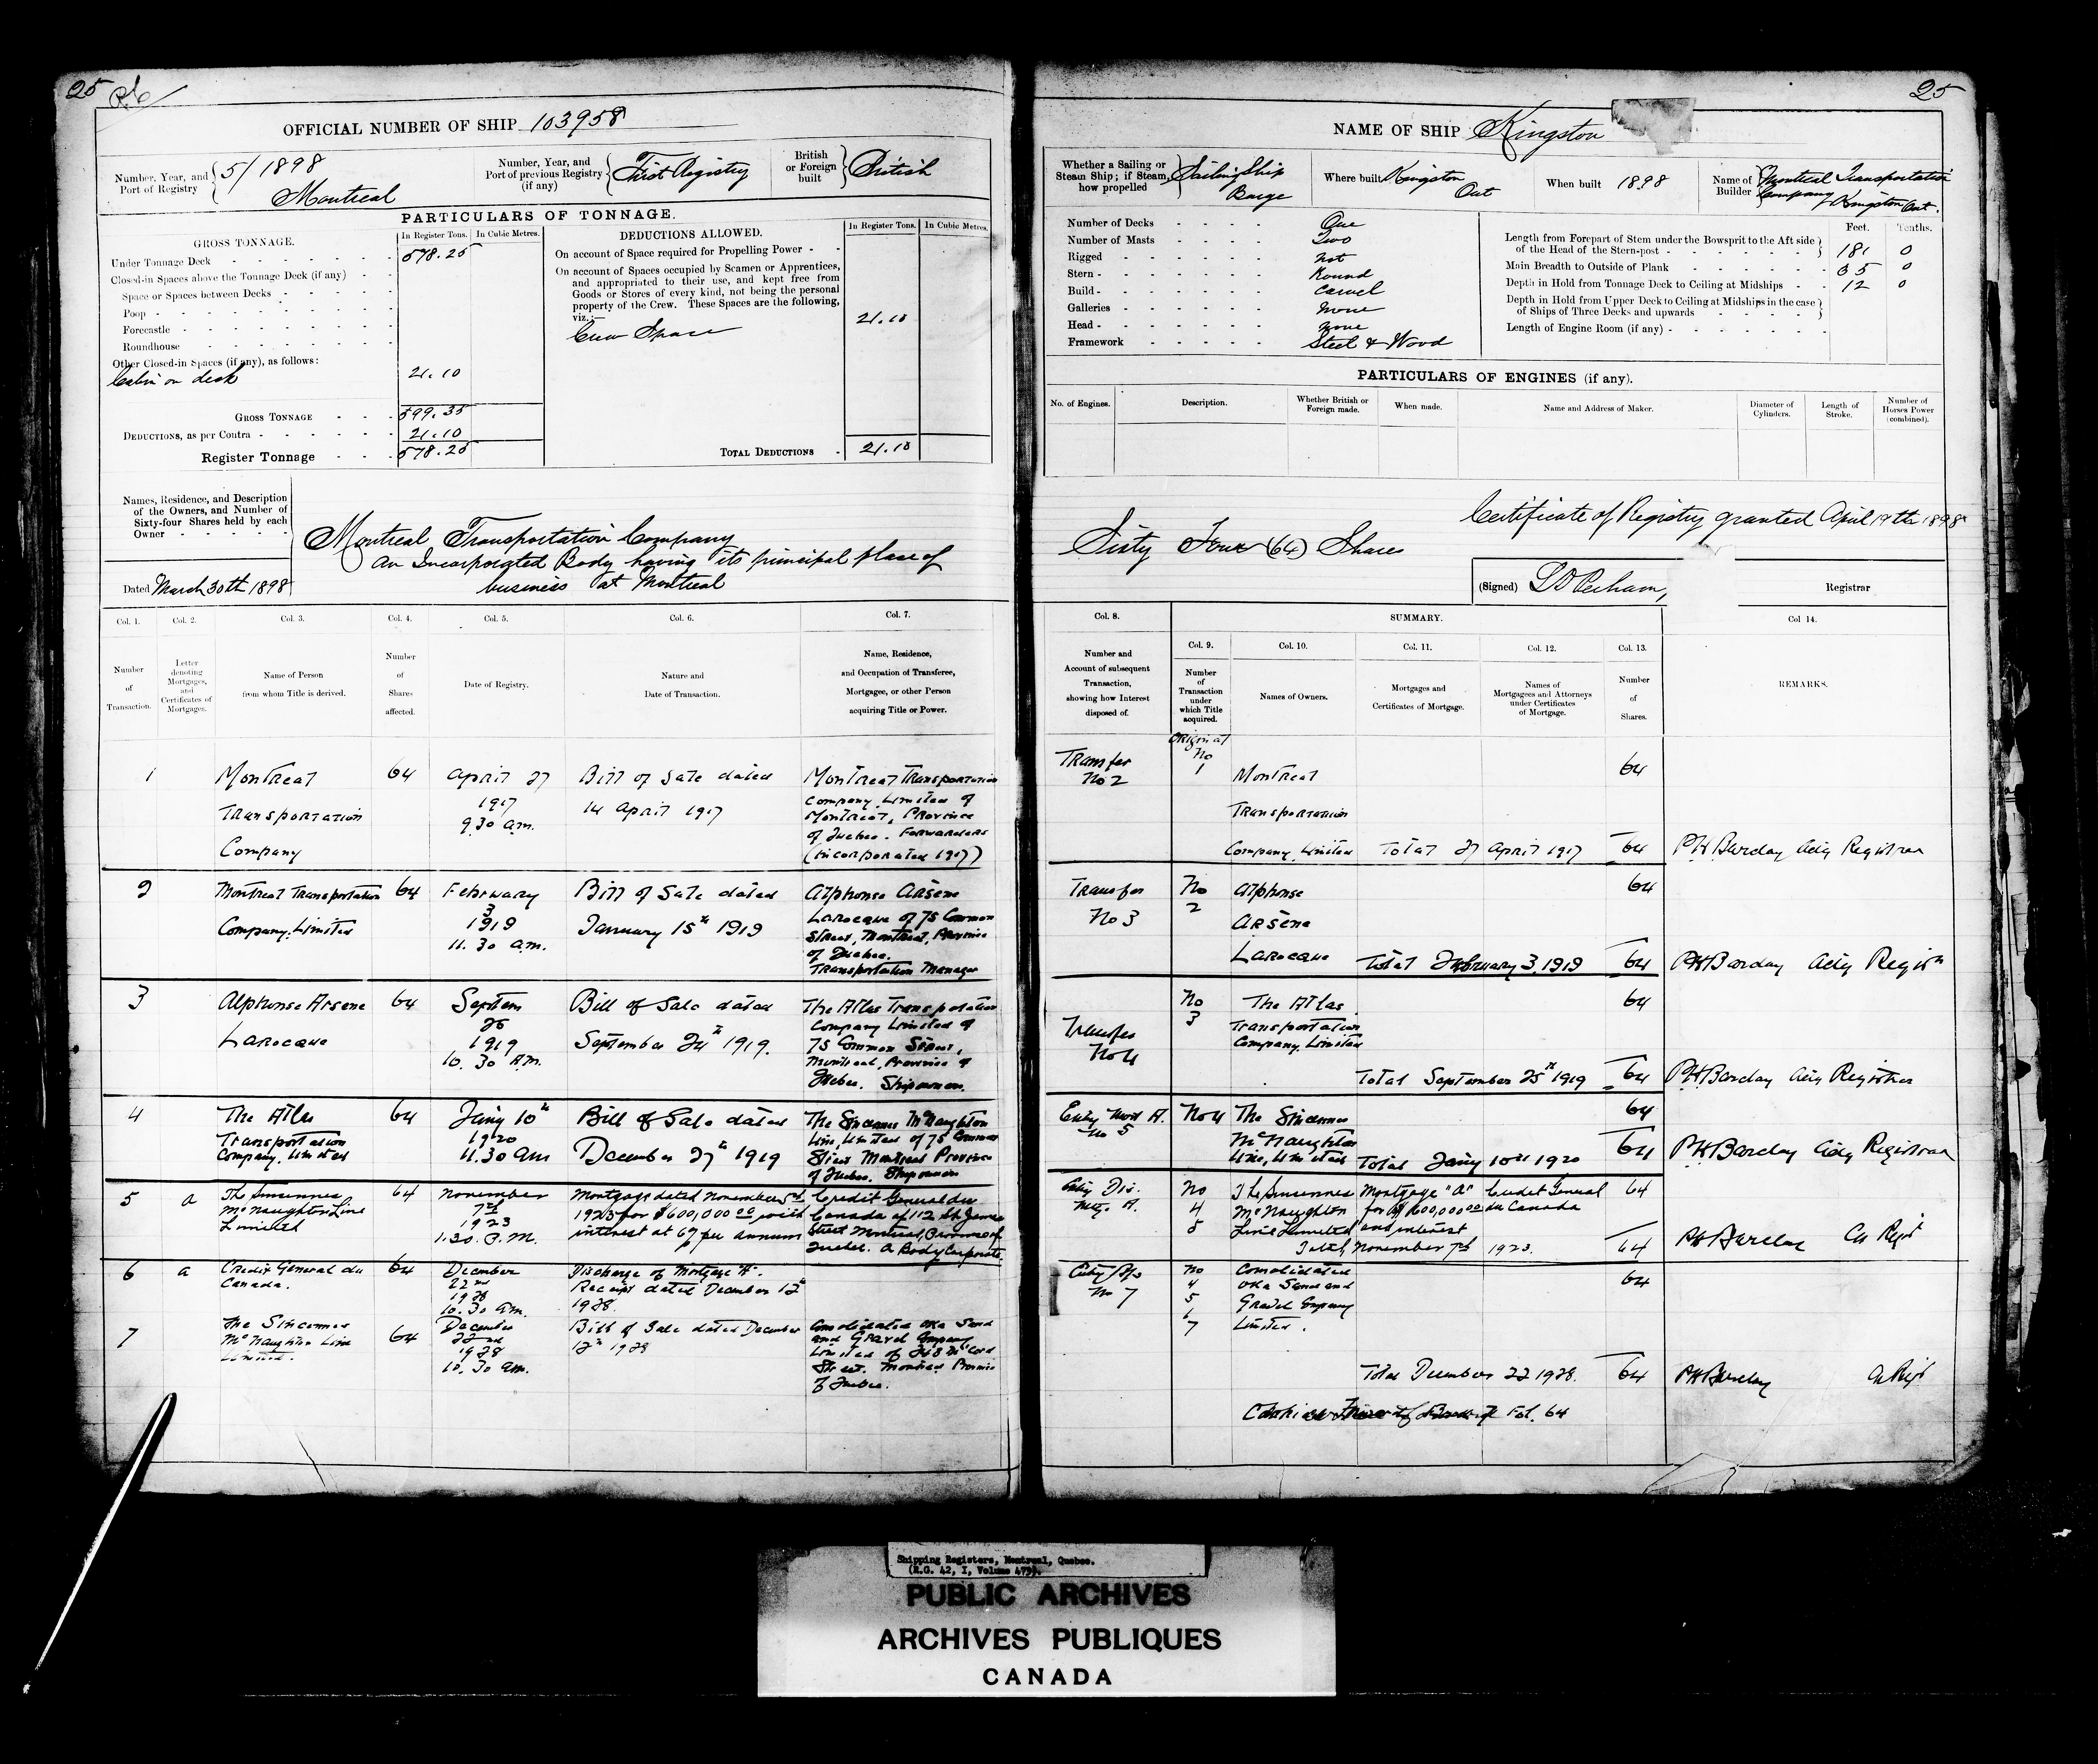 25
OFFICIAL NUMBER OF SHIP 103958
Number, Year, and Port of Registry 5/1898 Montreal
Number, Year, and Port of previous Registry (if any) First Registry
British or Foreign built British
PARTICULARS OF TONNAGE.
GROSS TONNAGE.
In Register Tons. In Cubic Metres.
Under Tonnage Deck 578.25
Closed-in Spaces above the Tonnage Deck (if any)
Space or Spaces between Decks
Poop
Forecastle
Roundhouse
Other Closed-in Spaces (if any), as follows:
Cabin on deck 21.10
GROSS TONNAGE 599.35
DEDUCTIONS, as per Contra 21.10
Register Tonnage 578.25
DEDUCTIONS ALLOWED.
In Register Tons. In Cubic Metres.
On account of Space required for Propelling Power
On account of Spaces occupied by Seamen or Apprentices,
and appropriated to their use, and kept free from
Goods or Stores of every kind, not being the personal
property of the Crew. These Spaces are the following,
viz.:—
Crew Space 21.10
TOTAL DEDUCTIONS 21.10
Names, Residence, and Description
of the Owners, and Number of
Sixty-four Shares held by each
Owner
Dated March 30th 1898
Montreal Transportation Company
An Incorporated Body having its principal place of
business at Montreal
Col. 1. Number of Transaction.
Col. 2. Letter denoting Mortgages, and Certificates of Mortgages.
Col. 3. Name of Person from whom Title is derived.
Col. 4. Number of Shares affected.
Col. 5. Date of Registry.
Col. 6. Nature and Date of Transaction.
Col. 7. Name, Residence, and Occupation of Transferee, Mortgagee, or other Person acquiring Title or Power.
1 Montreal 64 April 27 Bill of Sale dated Montreal Transportation
Transportation 1917 14 April 1917 Company, Limited of
9.30 a.m. Montreal, Province
Company of Quebec. Forwarders
(incorporated 1917)
2 Montreal Transportation 64 February Bill of Sale dated Alphonse Arsène
Company, Limited 3 1919 January 15th 1919 Larocque of 75 Common
11.30 a.m. Street, Montreal, Province
of Quebec.
Transportation Manager
3 Alphonse Arsene 64 Septem Bill of Sale dated The Atlas Transportation
Larocque 1919 September 24th 1919. Company Limited of
10.30 A.M. 75 Common Street,
Montreal, Province of
Quebec. Shipowners.
4 The Atlas 64 Jany 10th Bill of Sale dated The Sincennes McNaughton
Transportation 1920 December 27th 1919 Line, Limited of 75 Common
Company, Limited 11.30 am Street Montreal Province
of Quebec. Shipowners
5 a The Sincennes 64 November Mortgage dated November Credit General du
McNaughton Line 7th 1923 for $600,000.00 with Canada of 112 St. James
Limited 1923 interest at 6% per annum Street Montreal, Province of
1.30. P.M. Quebec. A Body Corporate.
6 a Credit General du 64 December Discharge of Mortgage "A".
Canada. 22nd Receipt dated December 12th
1928 1928.
10.30 am.
7 The Sincennes 64 December Bill of Sale dated December Consolidated Oka Sand
McNaughton Line 22nd 12th 1928 and Gravel Company
Limited. 1928 Limited of
10.30 am. Street. Montreal Province
of Quebec.
25
NAME OF SHIP Kingston
Whether a Sailing or Steam Ship; if Steam, how propelled Sailing Ship Barge
Where built Kingston Ont
When built 1898
Name of Builder Montreal Transportation Company Kingston Ont.
Number of Decks One
Number of Masts Two
Rigged Not
Stern Round
Build Carvel
Galleries None
Head None
Framework Steel & Wood
Feet. Tenths.
Length from Forepart of Stem under the Bowsprit to the Aft side
of the Head of the Stern-post 181 0
Main Breadth to Outside of Plank 35 0
Depth in Hold from Tonnage Deck to Ceiling at Midships 12 0
Depth in Hold from Upper Deck to Ceiling at Midships in the case
of Ships of Three Decks and upwards
Length of Engine Room (if any)
PARTICULARS OF ENGINES (if any).
No. of Engines. Description. Whether British or Foreign made. When made. Name and Address of Maker. Diameter of Cylinders. Length of Stroke. Number of Horses Power (combined).
Certificate of Registry granted April 19th 1898
Sixty Four (64) Shares
(Signed) Registrar
Col. 8. Number and Account of subsequent Transaction, showing how Interest disposed of.
SUMMARY.
Col. 9. Number of Transaction under which Title acquired.
Col. 10. Names of Owners.
Col. 11. Mortgages and Certificates of Mortgage.
Col. 12. Names of Mortgagees and Attorneys under Certificates of Mortgage.
Col. 13. Number of Shares.
Col 14. REMARKS.
Transfer Original 64
No 2 No 1 Montreal
Transportation
Company, Limited Total 27 April 1917 64 PH Barclay Actg Registrar
Transfer No Alphonse 64
No 3 2 Arsène
Larocque Total February 3, 1919 64 PH Barclay Actg Registr
No The Atlas 64
Transfer 3 Transportation
No 4 Company, Limited
Total September 25th 1919 64 PH Barclay Actg Registrar
Entry Mort A. No 4 The Sincennes 64
No 5 McNaughton
Line, Limited Total Jany 10th 1920 64 PH Barclay Actg Registrar
Entry Dis. No The Sincennes Mortgage "A" Credit General 64
Mtg. A. 4 McNaughton for $600,000.00 du Canada
5 Line Limited and interest
Total, November 7th 1923. 64 PH Barclay
No Consolidated 64
No 7 4 Oka Sand and
5 Gravel Company
6 Limited.
7
Total December 22 1928. 64 PH Barclay
Fol. 64
Shipping Registers, Montreal, Quebec.
(R.G. 42, I, Volume
PUBLIC ARCHIVES
ARCHIVES PUBLIQUES
CANADA